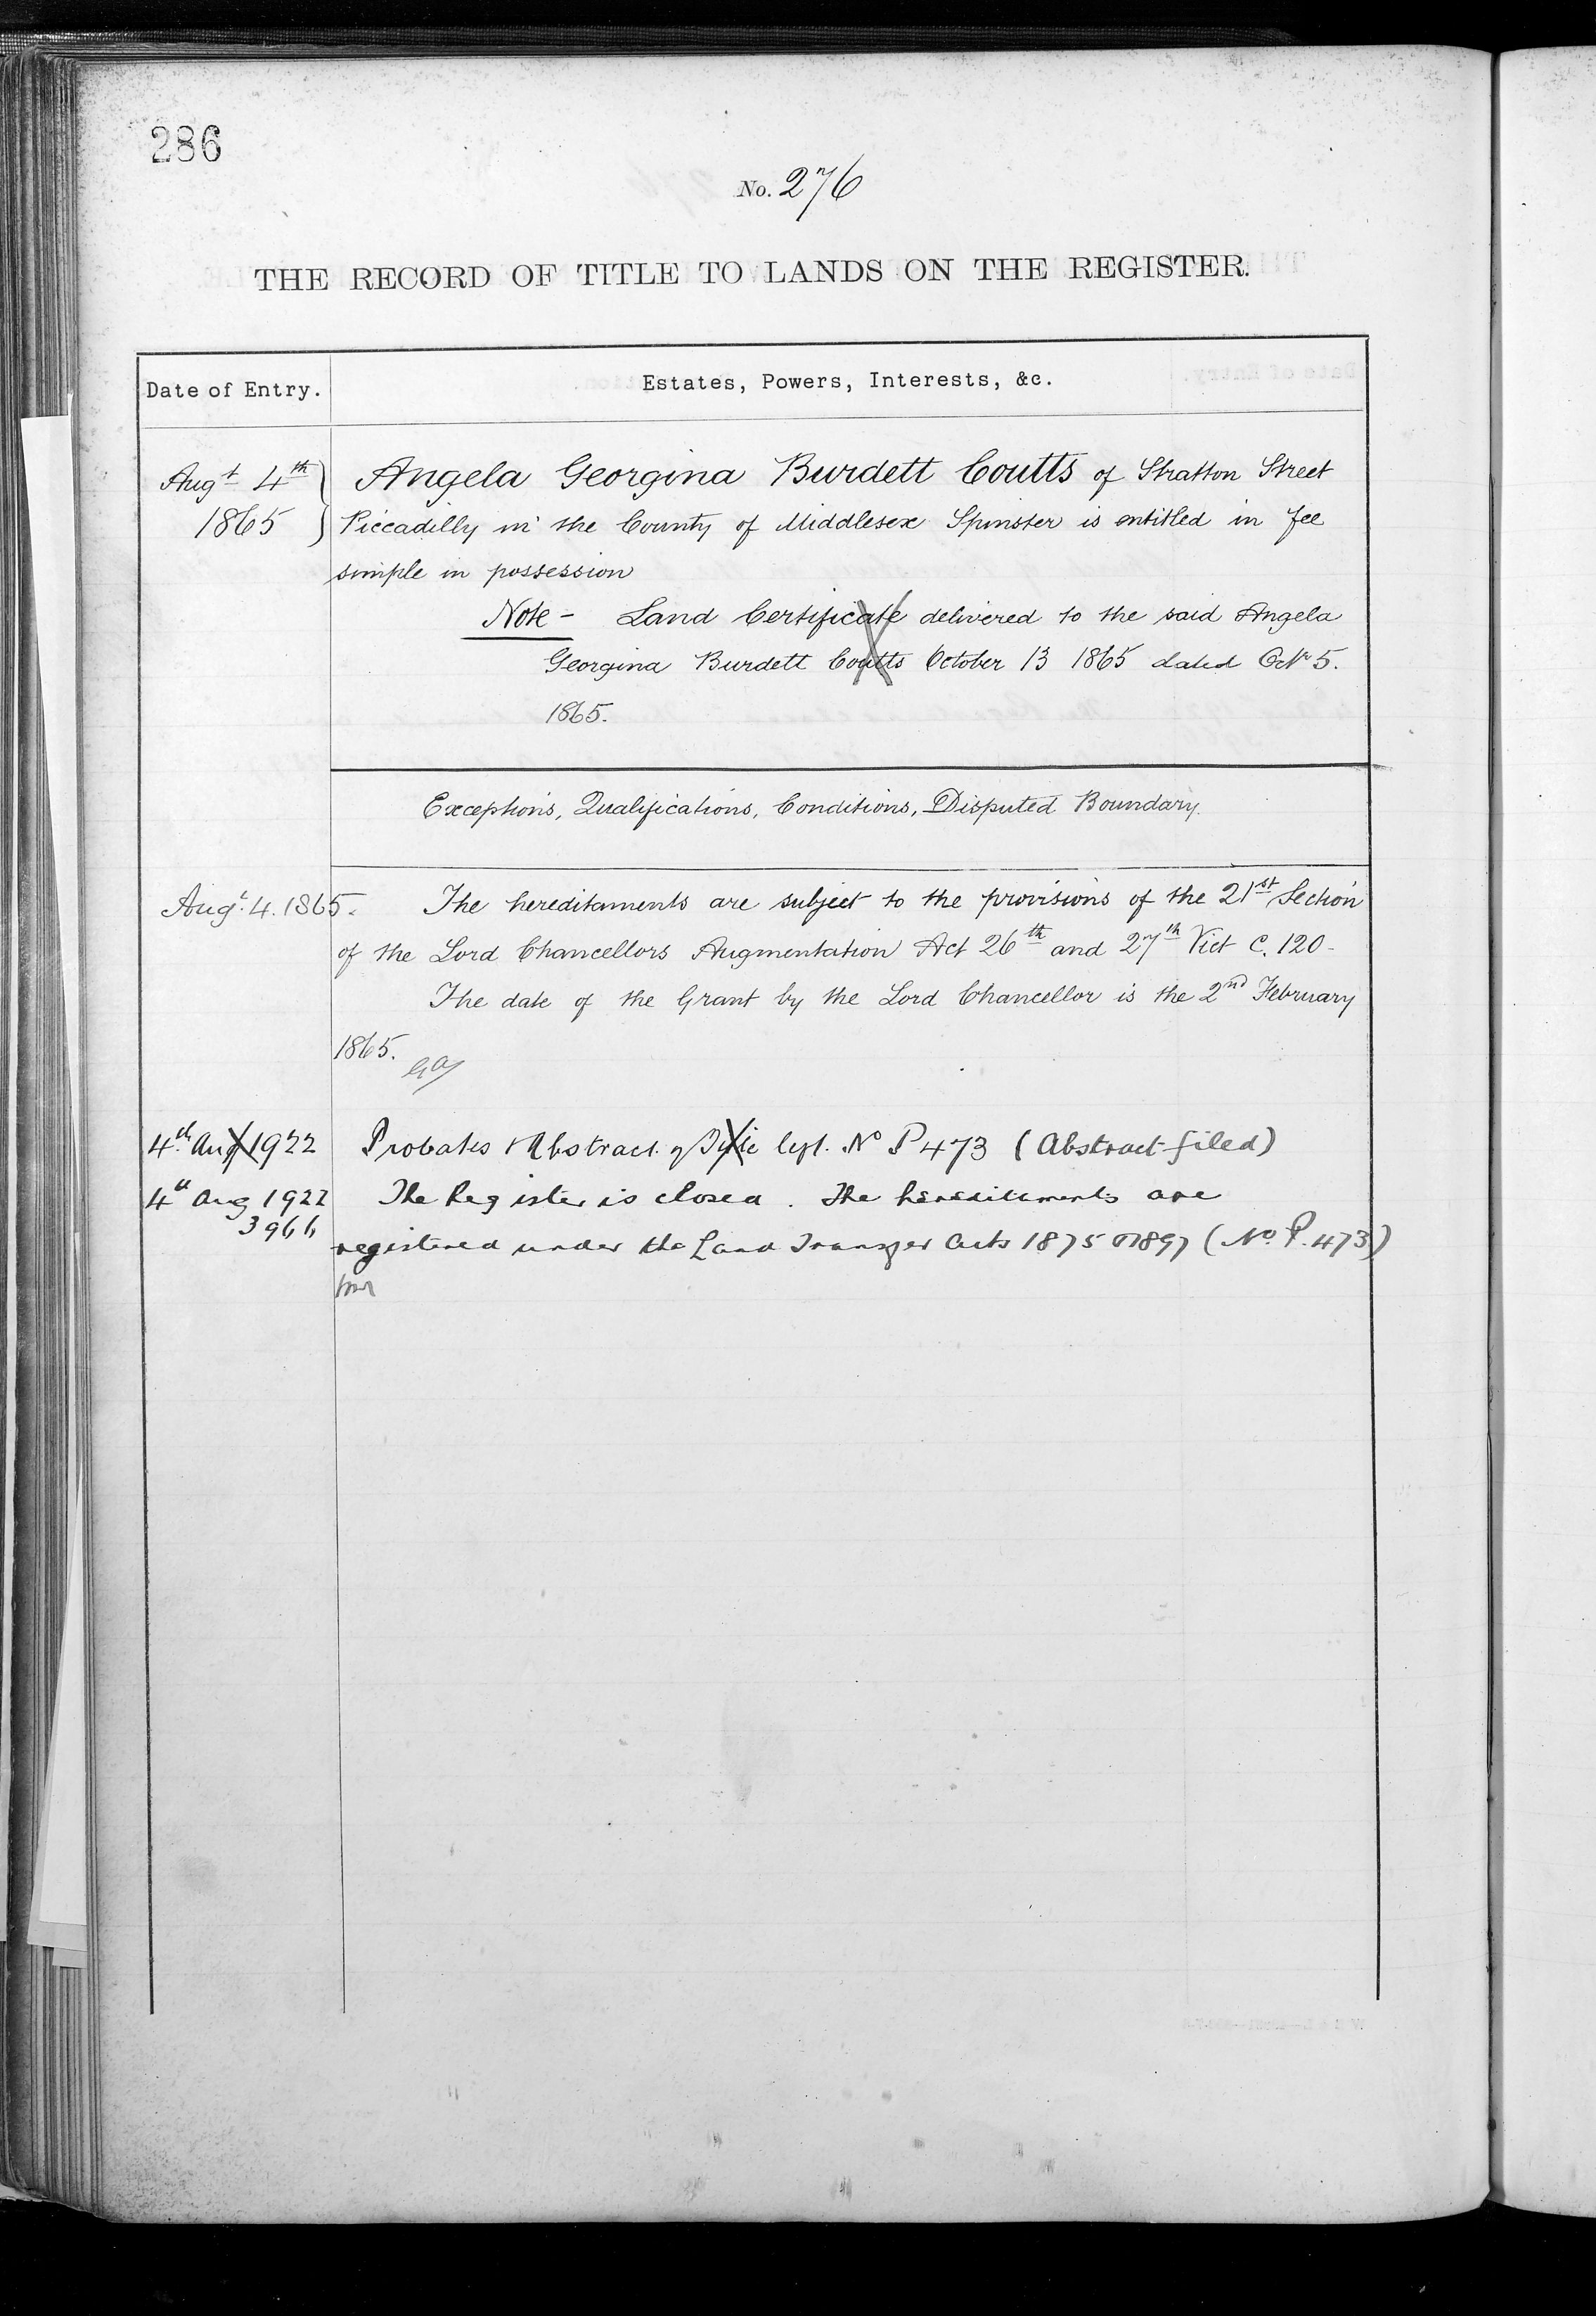 286
No. 276
THE RECORD OF TITLE TO LANDS ON THE REGISTER.
Date of Entry.
Estates, Powers, Interests, &c.
Augt 4th
1865
Angela Georgina Burdett Coutts of Stratton Street
Piccadilly in the County of Middlesex Spinster is entitled in fee
simple in possession
Note - Land Certificate delivered to the said Angela
Georgina Burdett Coutts October 13 1865 dated Octr 5.
1865.
Exceptions, Qualifications, Conditions, Disputed Boundary.
Augt. 4. 1865.
The hereditaments are subject to the provisions of the 21st Section
of the Lord Chancellors Augmentation Act 26th and 27th Vict C. 120-
The date of the Grant by the Lord Chancellor is the 2nd February
1865.
4th Aug 1922 Probates & Abstract of Title No P 473 (Abstract filed)
4th Aug 1922 The Register is closed. The hereditaments are
3966
registered under the Land Transfer Acts 1875 & 1897 (No. P. 473)